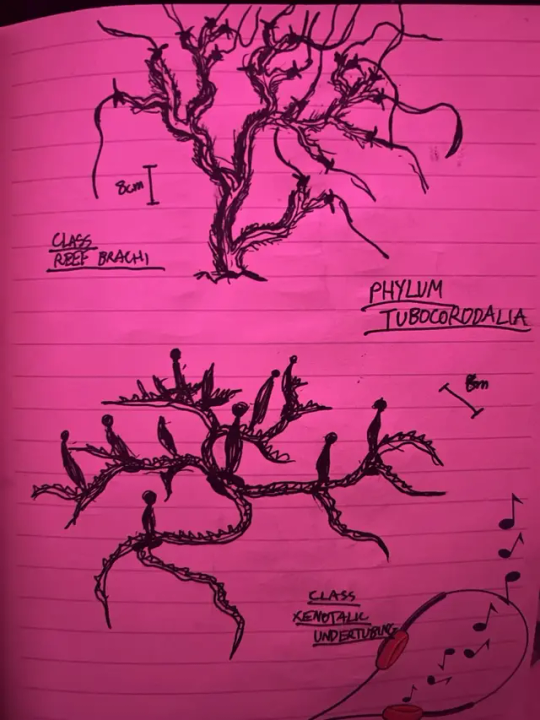 8cm
CLASS
REEF BRACHI
PHYLUM
TUBOCORODALIA
8m
CLASS
XENOTALIC
UNDERTUBING